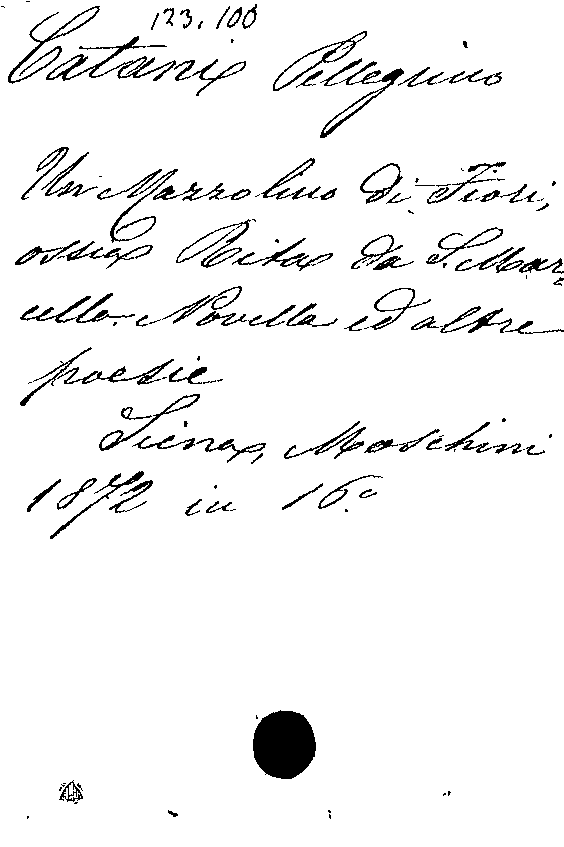 123.100
Catani Pellegrino
Un Mazzolino di Fiori,
ossia Rita da S. Mar=
cello. Novella ed altre
poesie
Siena, Moschini
1872 in 16.°